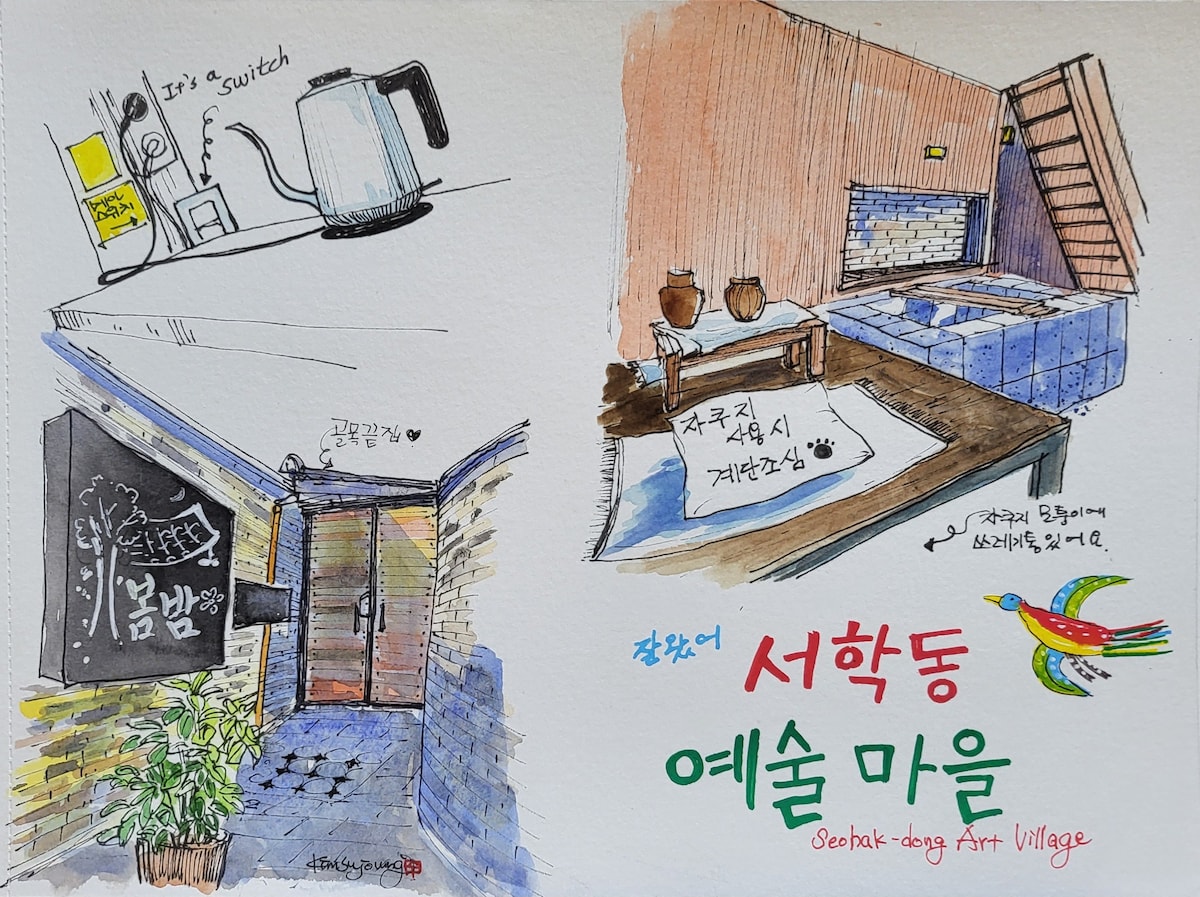 It's a
switch
메인
스위치
골목끝집
봄밤
Kimsuyoung
자쿠지
사용시
계단조심
자쿠지 모퉁이에
쓰레기통있어요.
잘왔어
서학동
예술 마을
Seohak-dong Art Village